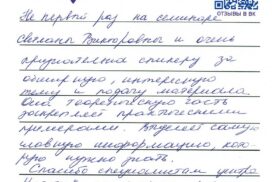 ОТЗЫВЫ В ВК
Не первый раз на семинаре
Светланы Викторовны и очень
признательна спикеру за
обширную, интересную
тему и подачу материала.
Она теоретическую часть
закрепляет практическими
примерами. самую
главную информацию, кото-
рую нужно знать.
Спасибо специалистам центра